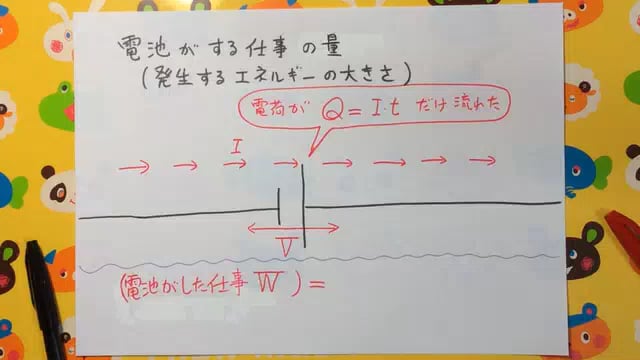 電池がする仕事の量
(発生するエネルギーの大きさ)
電荷が Q=I·t だけ流れた
I
V
(電池がした仕事 W ) =